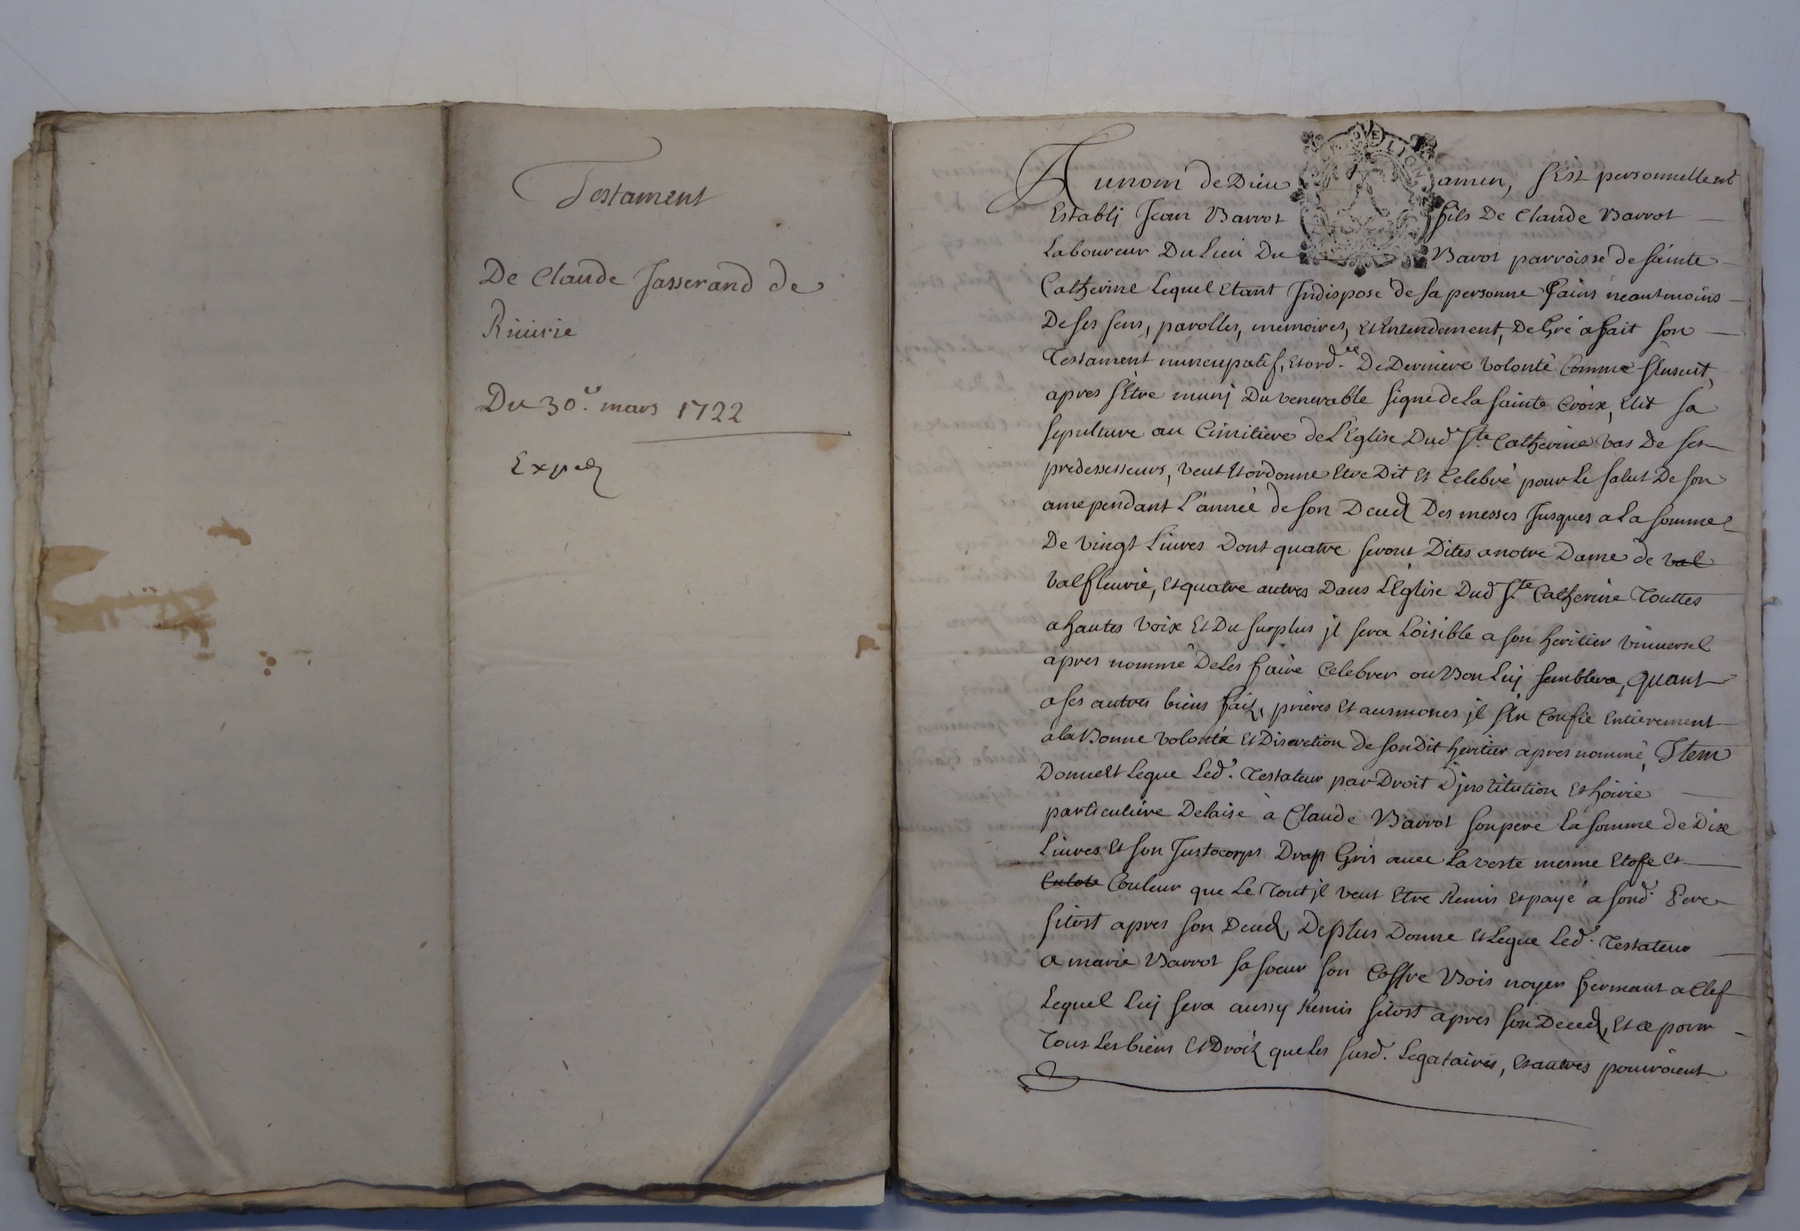 Testament
De Claude Jasserand de
Riuirie
Du 30.e mars 1722
Exped
Au nom de Dieu amen, s'Est personnellemt
Establj Jean Barrot fils De Claude Barrot
Laboureur Du Lieu Du Barot parroisse de sainte
Catherine Lequel Etant Jndispose de sa personne sains neantmoins
De ses sens, parolles, memoires, et Entendement, De Gré a fait son
Testament nuncupatif, et ord.ce De Derniere volonté Comme s'Ensuit,
apres s'Etre munj Du venerable signe de la sainte Croix, Elit sa
sepulture au Cimitiere de L'Eglise Dud. Ste Catherine vas De ses
predessesseurs, veut Et ordonne Etre Dit Et Celebré pour Le salut De son
ame pendant L'année de son Deced Des messes Jusques a La somme
De vingt Liures Dont quatre seront Dites a notre Dame de val
valfleurie, et quatre autres Dans L'Eglise Dud. Ste Catherine Touttes
a hautes voix Et Du surplus jl sera Loisible a son heritier vniuersel
apres nommé De Les faire Celebrer ou Bon Luy semblera, quant
a ses autres biens fait, prieres Et aumones jl s'En Confie Entierement
a la Bonne volonté Et Discretion de son Dit heritier apres nommé, Jtem
Donne Et Legue Led. Testateur par Droit D'jnstitution Et hoirie
particuliere Delaisé à Claude Barrot son pere La somme de Dix
Liures Et son Justocorps Drap Gris auec La veste mesme Etofe Et
Culote Couleur que Le Tout jl veut Etre Remis Et payé a sond. Pere
sitost apres son Deced, De plus Donne Et Legue Led. Testateur
a marie Barrot sa soeur son Coffre Bois noyer fermant a Clef
Lequel Luy sera aussy Remis sitost apres son Deced, Et ce pour
Tous Les biens Et Droit que Les susd. Legataires, Et autres pouroient